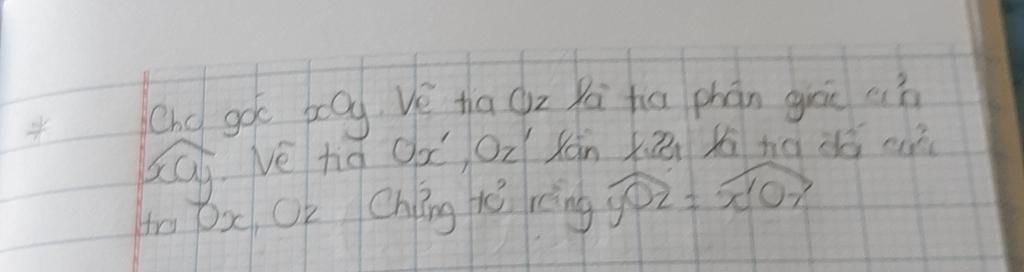 Cho góc xOy. Vẽ tia Oz là tia phân giác của
xOy. Vẽ tia Ox', Oz' lần lượt là tia đối của
tia Ox, Oz Chứng tỏ rằng yOz = x'Oz'